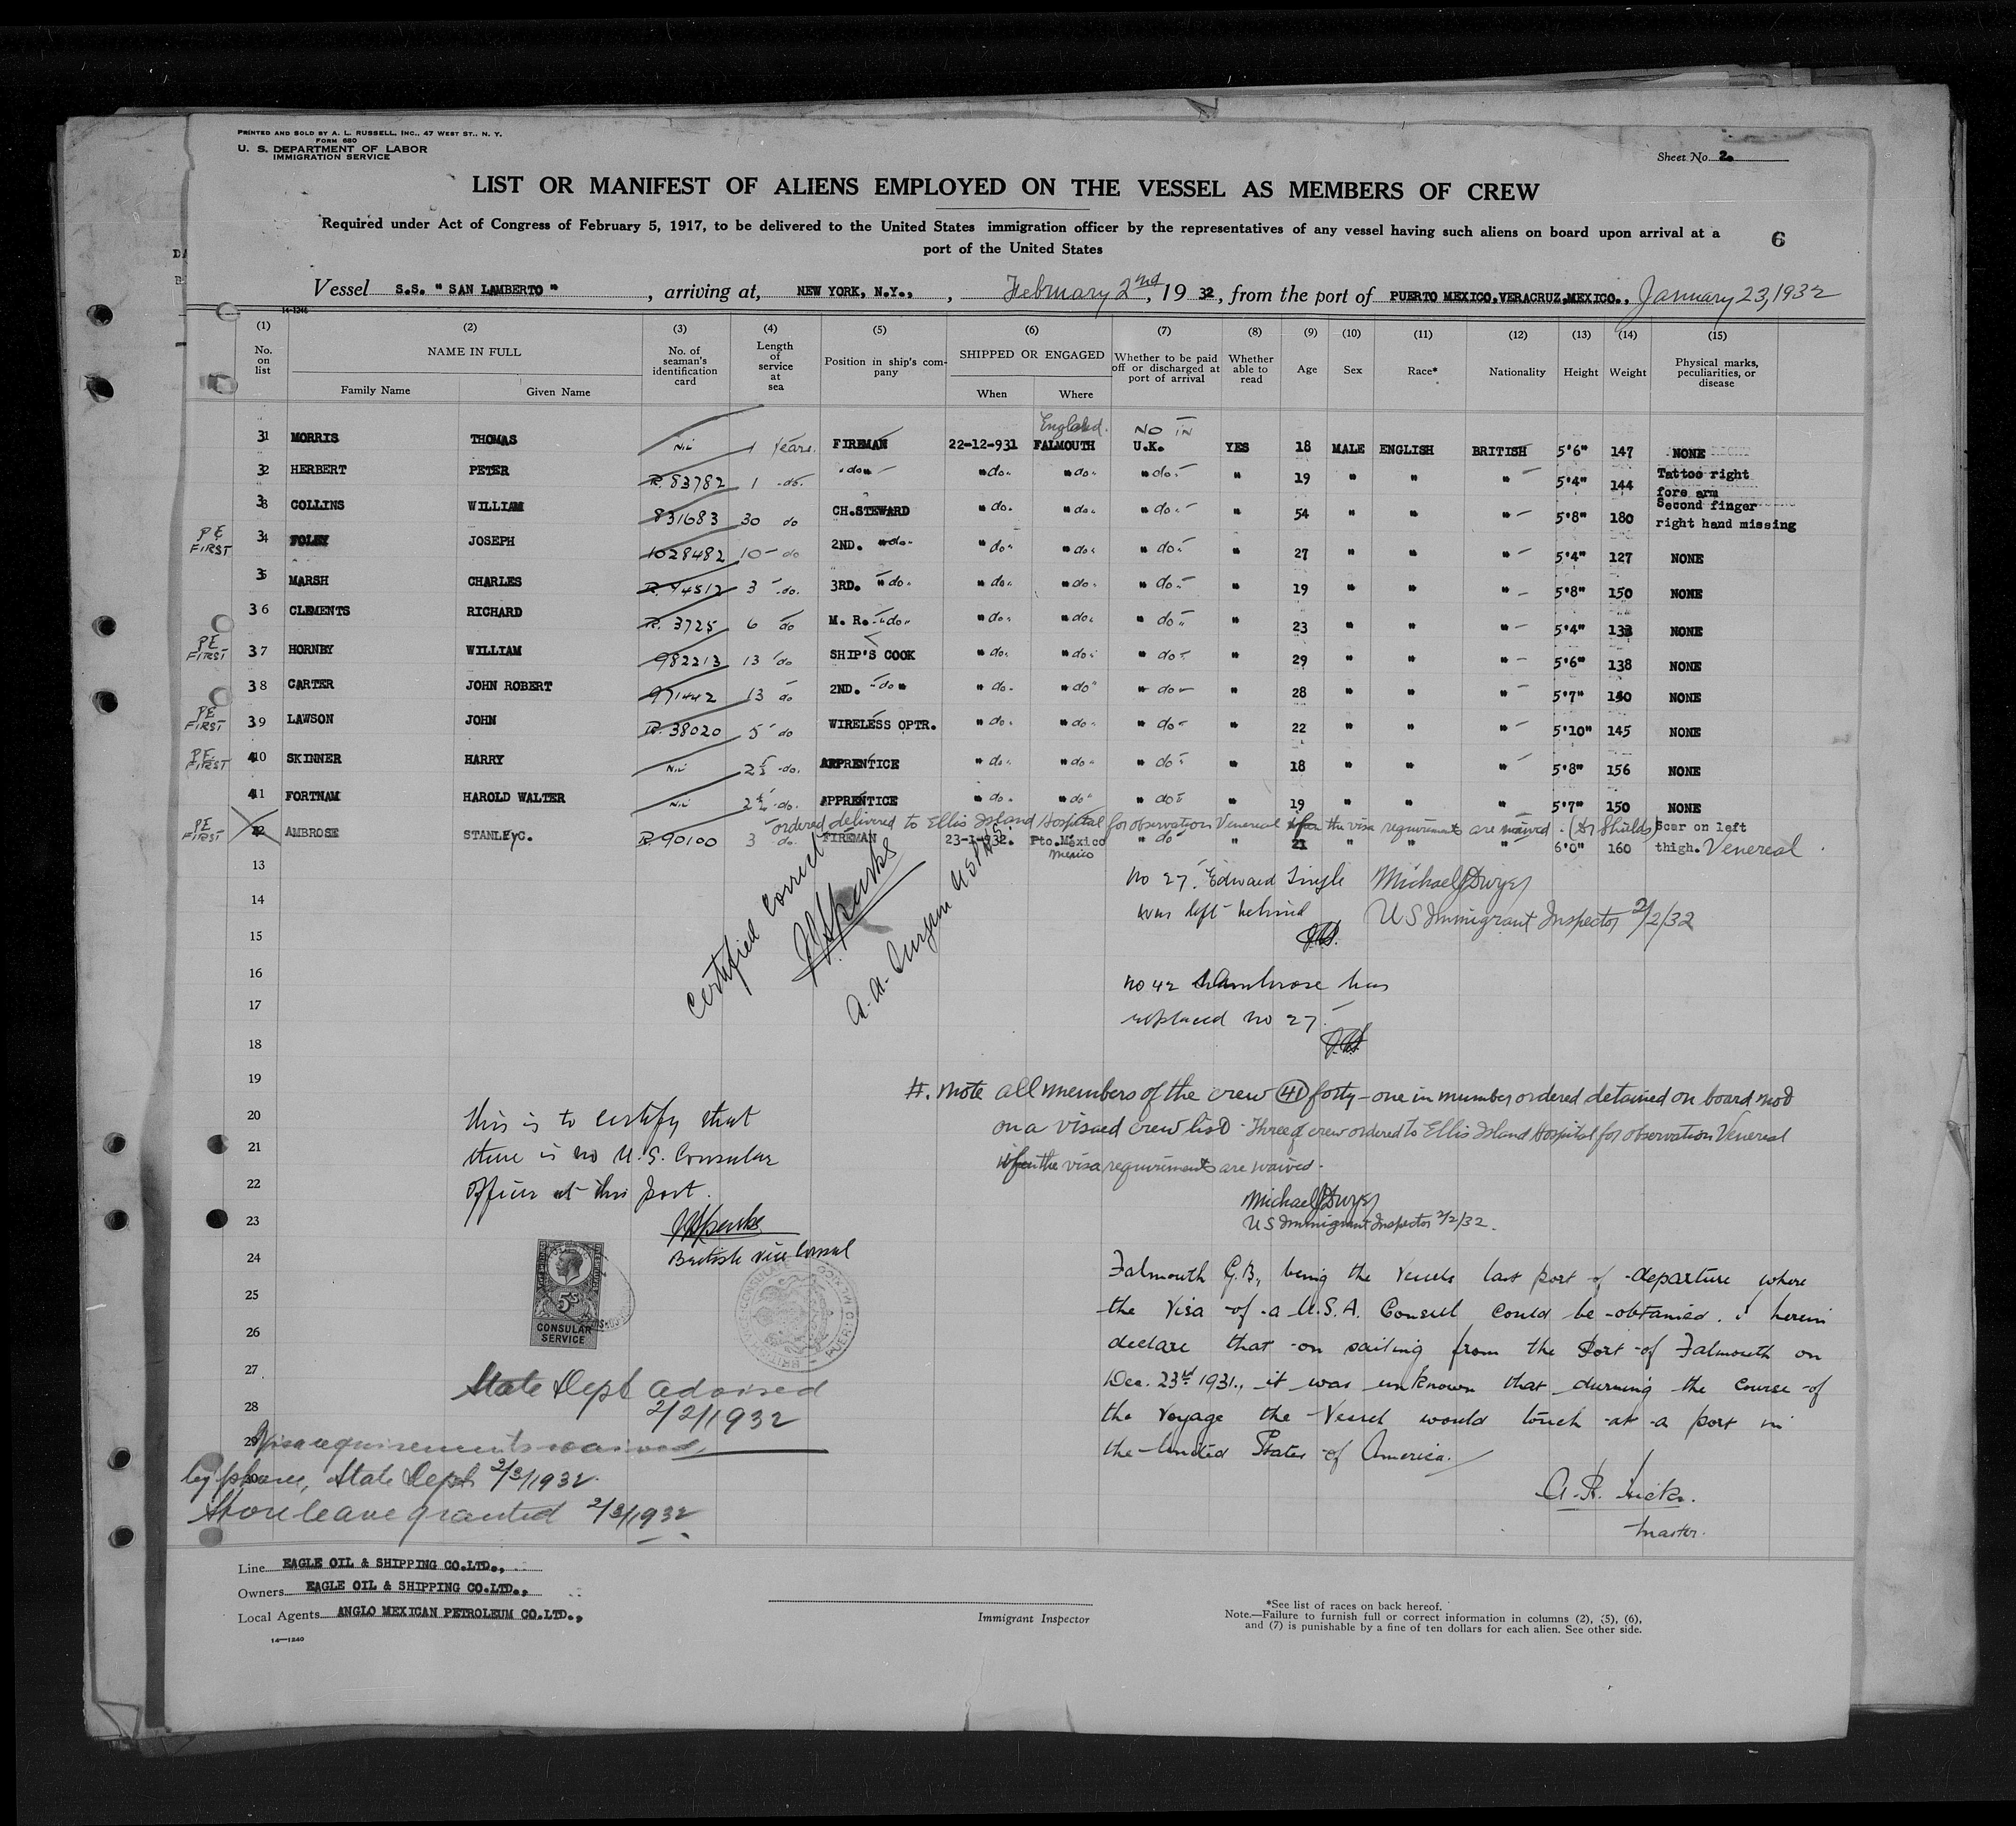 PRINTED AND SOLD BY A. L. RUSSELL, INC., 47 WEST ST., N. Y.
FORM 680
U. S. DEPARTMENT OF LABOR
IMMIGRATION SERVICE
Sheet No. 2.
LIST OR MANIFEST OF ALIENS EMPLOYED ON THE VESSEL AS MEMBERS OF CREW
Required under Act of Congress of February 5, 1917, to be delivered to the United States immigration officer by the representatives of any vessel having such aliens on board upon arrival at a
port of the United States
6
Vessel S.S. "SAN LAMBERTO", arriving at, NEW YORK, N.Y., , February 2nd, 19 32, from the port of PUERTO MEXICO, VERACRUZ, MEXICO., January 23, 1932
14-1240
(1) (2) (3) (4) (5) (6) (7) (8) (9) (10) (11) (12) (13) (14) (15)
No. on list NAME IN FULL Family Name Given Name No. of seaman's identification card Length of service at sea Position in ship's company SHIPPED OR ENGAGED When Where Whether to be paid off or discharged at port of arrival Whether able to read Age Sex Race* Nationality Height Weight Physical marks, peculiarities, or disease
England. NO IN
31 MORRIS THOMAS Nil 1 Years. FIREMAN 22-12-931 FALMOUTH U.K. YES 18 MALE ENGLISH BRITISH 5'6" 147 NONE
32 HERBERT PETER R.83782 1 -do- "do" "do" "do" "do" " 19 " " " 5'4" 144 Tattoo right fore arm
33 COLLINS WILLIAM 831683 30 do CH.STEWARD "do" "do" "do" " 54 " " " 5'8" 180 Second finger right hand missing
PE FIRST 34 FOLEY JOSEPH 1028482 10 do 2ND. "do" "do" "do" "do" " 27 " " " 5'4" 127 NONE
35 MARSH CHARLES R.94512 3 do. 3RD. "do" "do" "do" "do" " 19 " " " 5'8" 150 NONE
36 CLEMENTS RICHARD R. 3725 6 do M. R. "do" "do" "do" "do" " 23 " " " 5'4" 133 NONE
PE FIRST 37 HORNBY WILLIAM 982213 13 do SHIP'S COOK "do" "do" "do" " 29 " " " 5'6" 138 NONE
38 CARTER JOHN ROBERT 971442 13 do 2ND. "do" "do" "do" "do" " 28 " " " 5'7" 140 NONE
PE FIRST 39 LAWSON JOHN R.38020 5 do WIRELESS OPTR. "do" "do" "do" " 22 " " " 5'10" 145 NONE
PE FIRST 40 SKINNER HARRY Nil 2½ do. APPRENTICE "do" "do" "do" " 18 " " " 5'8" 156 NONE
41 FORTNAM HAROLD WALTER Nil 2½ do. APPRENTICE "do" "do" "do" " 19 " " " 5'7" 150 NONE
ordered delivered to Ellis Island Hospital for observation Venereal when the visa requirements are waived. (Dr Shields)
PE FIRST 42 AMBROSE STANLEY C. R.90100 3 do. FIREMAN 23-1-932. Pto. Mexico Mexico "do" " 21 " " " 6'0" 160 Scar on left thigh. Venereal
13
14
15
16
17
18
19
20
21
22
23
24
25
26
27
28
29
30
Certified Correct
No 27. Edward Single
was left behind
Michael J Dwyer
US Immigrant Inspector 2/2/32
No 42 S Ambrose has
replaced No 27.
#. Note all members of the crew (41) forty-one in number ordered detained on board not
on a visaed crew list - Three of crew ordered to Ellis Island Hospital for observation Venereal
when the visa requirements are waived.
Michael J Dwyer
US Immigrant Inspector 2/2/32.
This is to certify that
there is no U.S. Consular
Officer at this port.
British Vice Consul
5s
CONSULAR
SERVICE
Falmouth G.B., being the vessels last port of departure where
the visa of a U.S.A. Consul could be obtained. I herein
declare that on sailing from the Port of Falmouth on
Dec. 23rd 1931., it was unknown that durning the course of
the voyage the vessel would touch at a port in
the United States of America.
A. H. Hicks.
Master.
State Dept advised
2/2/1932
Visa requirements waived
by phone, State Dept 2/3/1932.
Shore leave granted 2/3/1932
Line EAGLE OIL & SHIPPING CO.LTD.,
Owners EAGLE OIL & SHIPPING CO.LTD.,
Local Agents ANGLO MEXICAN PETROLEUM CO.LTD.,
14—1240
Immigrant Inspector
*See list of races on back hereof.
Note.—Failure to furnish full or correct information in columns (2), (5), (6),
and (7) is punishable by a fine of ten dollars for each alien. See other side.